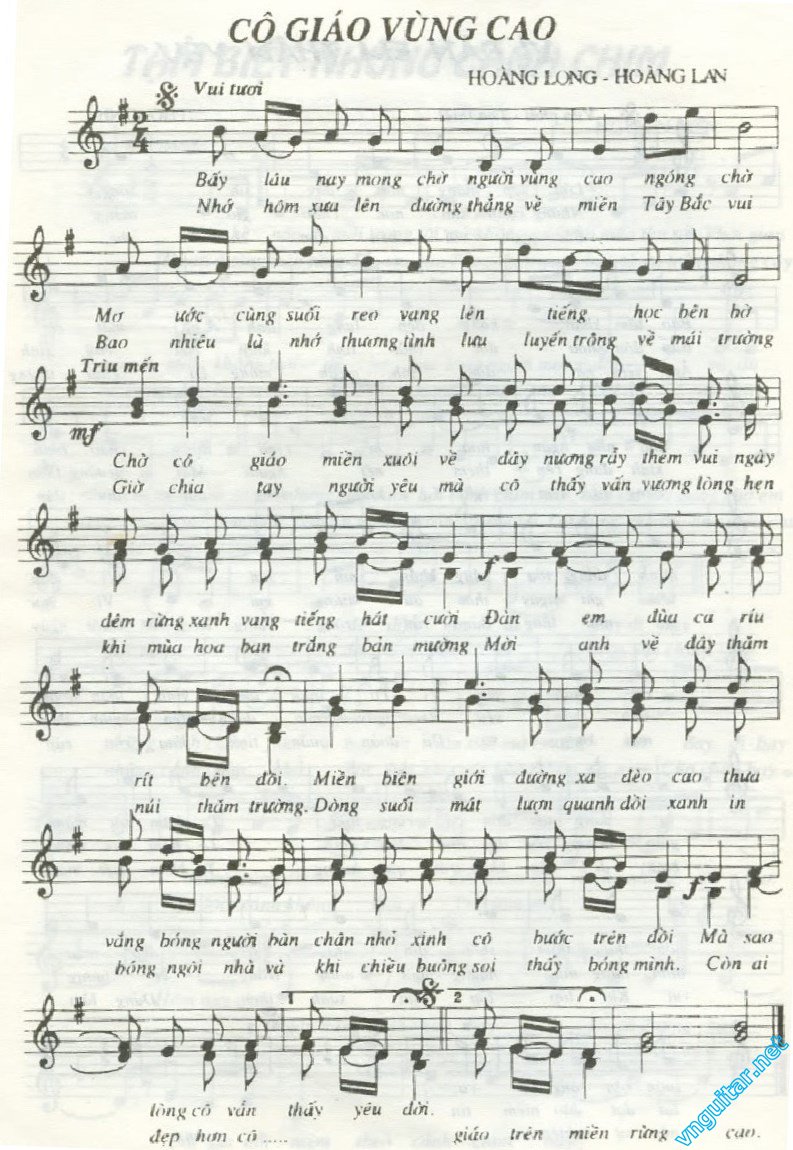 CÔ GIÁO VÙNG CAO
HOÀNG LONG - HOÀNG LAN
Vui tươi
2
4
Bấy lâu nay mong chờ người vùng cao ngóng chờ
Nhớ hôm xưa lên đường thẳng về miền Tây Bắc vui
Mơ ước cùng suối reo vang lên tiếng học bên bờ
Bao nhiêu là nhớ thương tình lưu luyến trông về mái trường
Trìu mến
mf
Chờ cô giáo miền xuôi về đây nương rẫy thêm vui ngày
Giờ chia tay người yêu mà cô thấy vấn vương lòng hẹn
f
đêm rừng xanh vang tiếng hát cười Đàn em đùa ca ríu
khi mùa hoa ban trắng bản mường Mời anh về đây thăm
rít bên đồi Miền biên giới đường xa đèo cao thưa
núi thăm trường. Dòng suối mát lượn quanh đồi xanh in
f
vắng bóng người bàn chân nhỏ xinh cô bước trên đồi Mà sao
bóng ngôi nhà và khi chiều buông soi thấy bóng mình. Còn ai
1 2
lòng cô vẫn thấy yêu đời.
đẹp hơn cô..... giáo trên miền rừng cao.
vnguitar.net